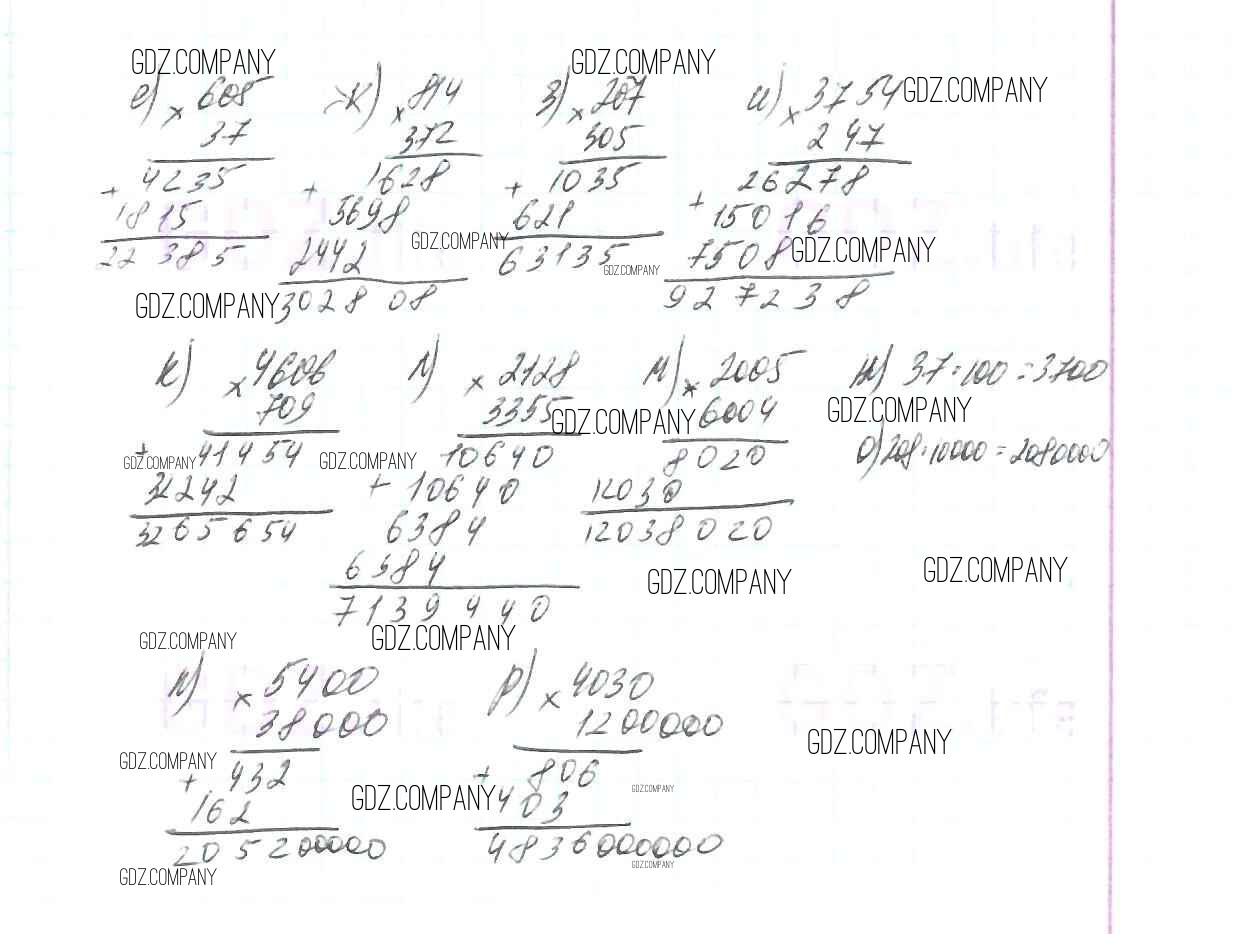 GDZ.COMPANY GDZ.COMPANY
е) × 605 ж) × 814 з) × 207 и) × 3754 GDZ.COMPANY
37 372 305 247
+ 4235 + 1628 + 1035 + 26278
1815 5698 621 15016
22385 2442 GDZ.COMPANY 63135 7508 GDZ.COMPANY
GDZ.COMPANY 302808 GDZ.COMPANY 927238
к) × 4606 л) × 2128 м) × 2005 н) 37·100=3700
709 3355 GDZ.COMPANY 6004 GDZ.COMPANY
+ 41454 10640 8020 о) 208·10000=2080000
GDZ.COMPANY GDZ.COMPANY
32242 + 10640 12030
3265654 6384 12038020
6384 GDZ.COMPANY GDZ.COMPANY
7139440
GDZ.COMPANY GDZ.COMPANY
п) × 5400 р) × 4030
38000 1200000
GDZ.COMPANY GDZ.COMPANY
+ 432 + 806
GDZ.COMPANY GDZ.COMPANY
162 403
205200000 4836000000
GDZ.COMPANY GDZ.COMPANY